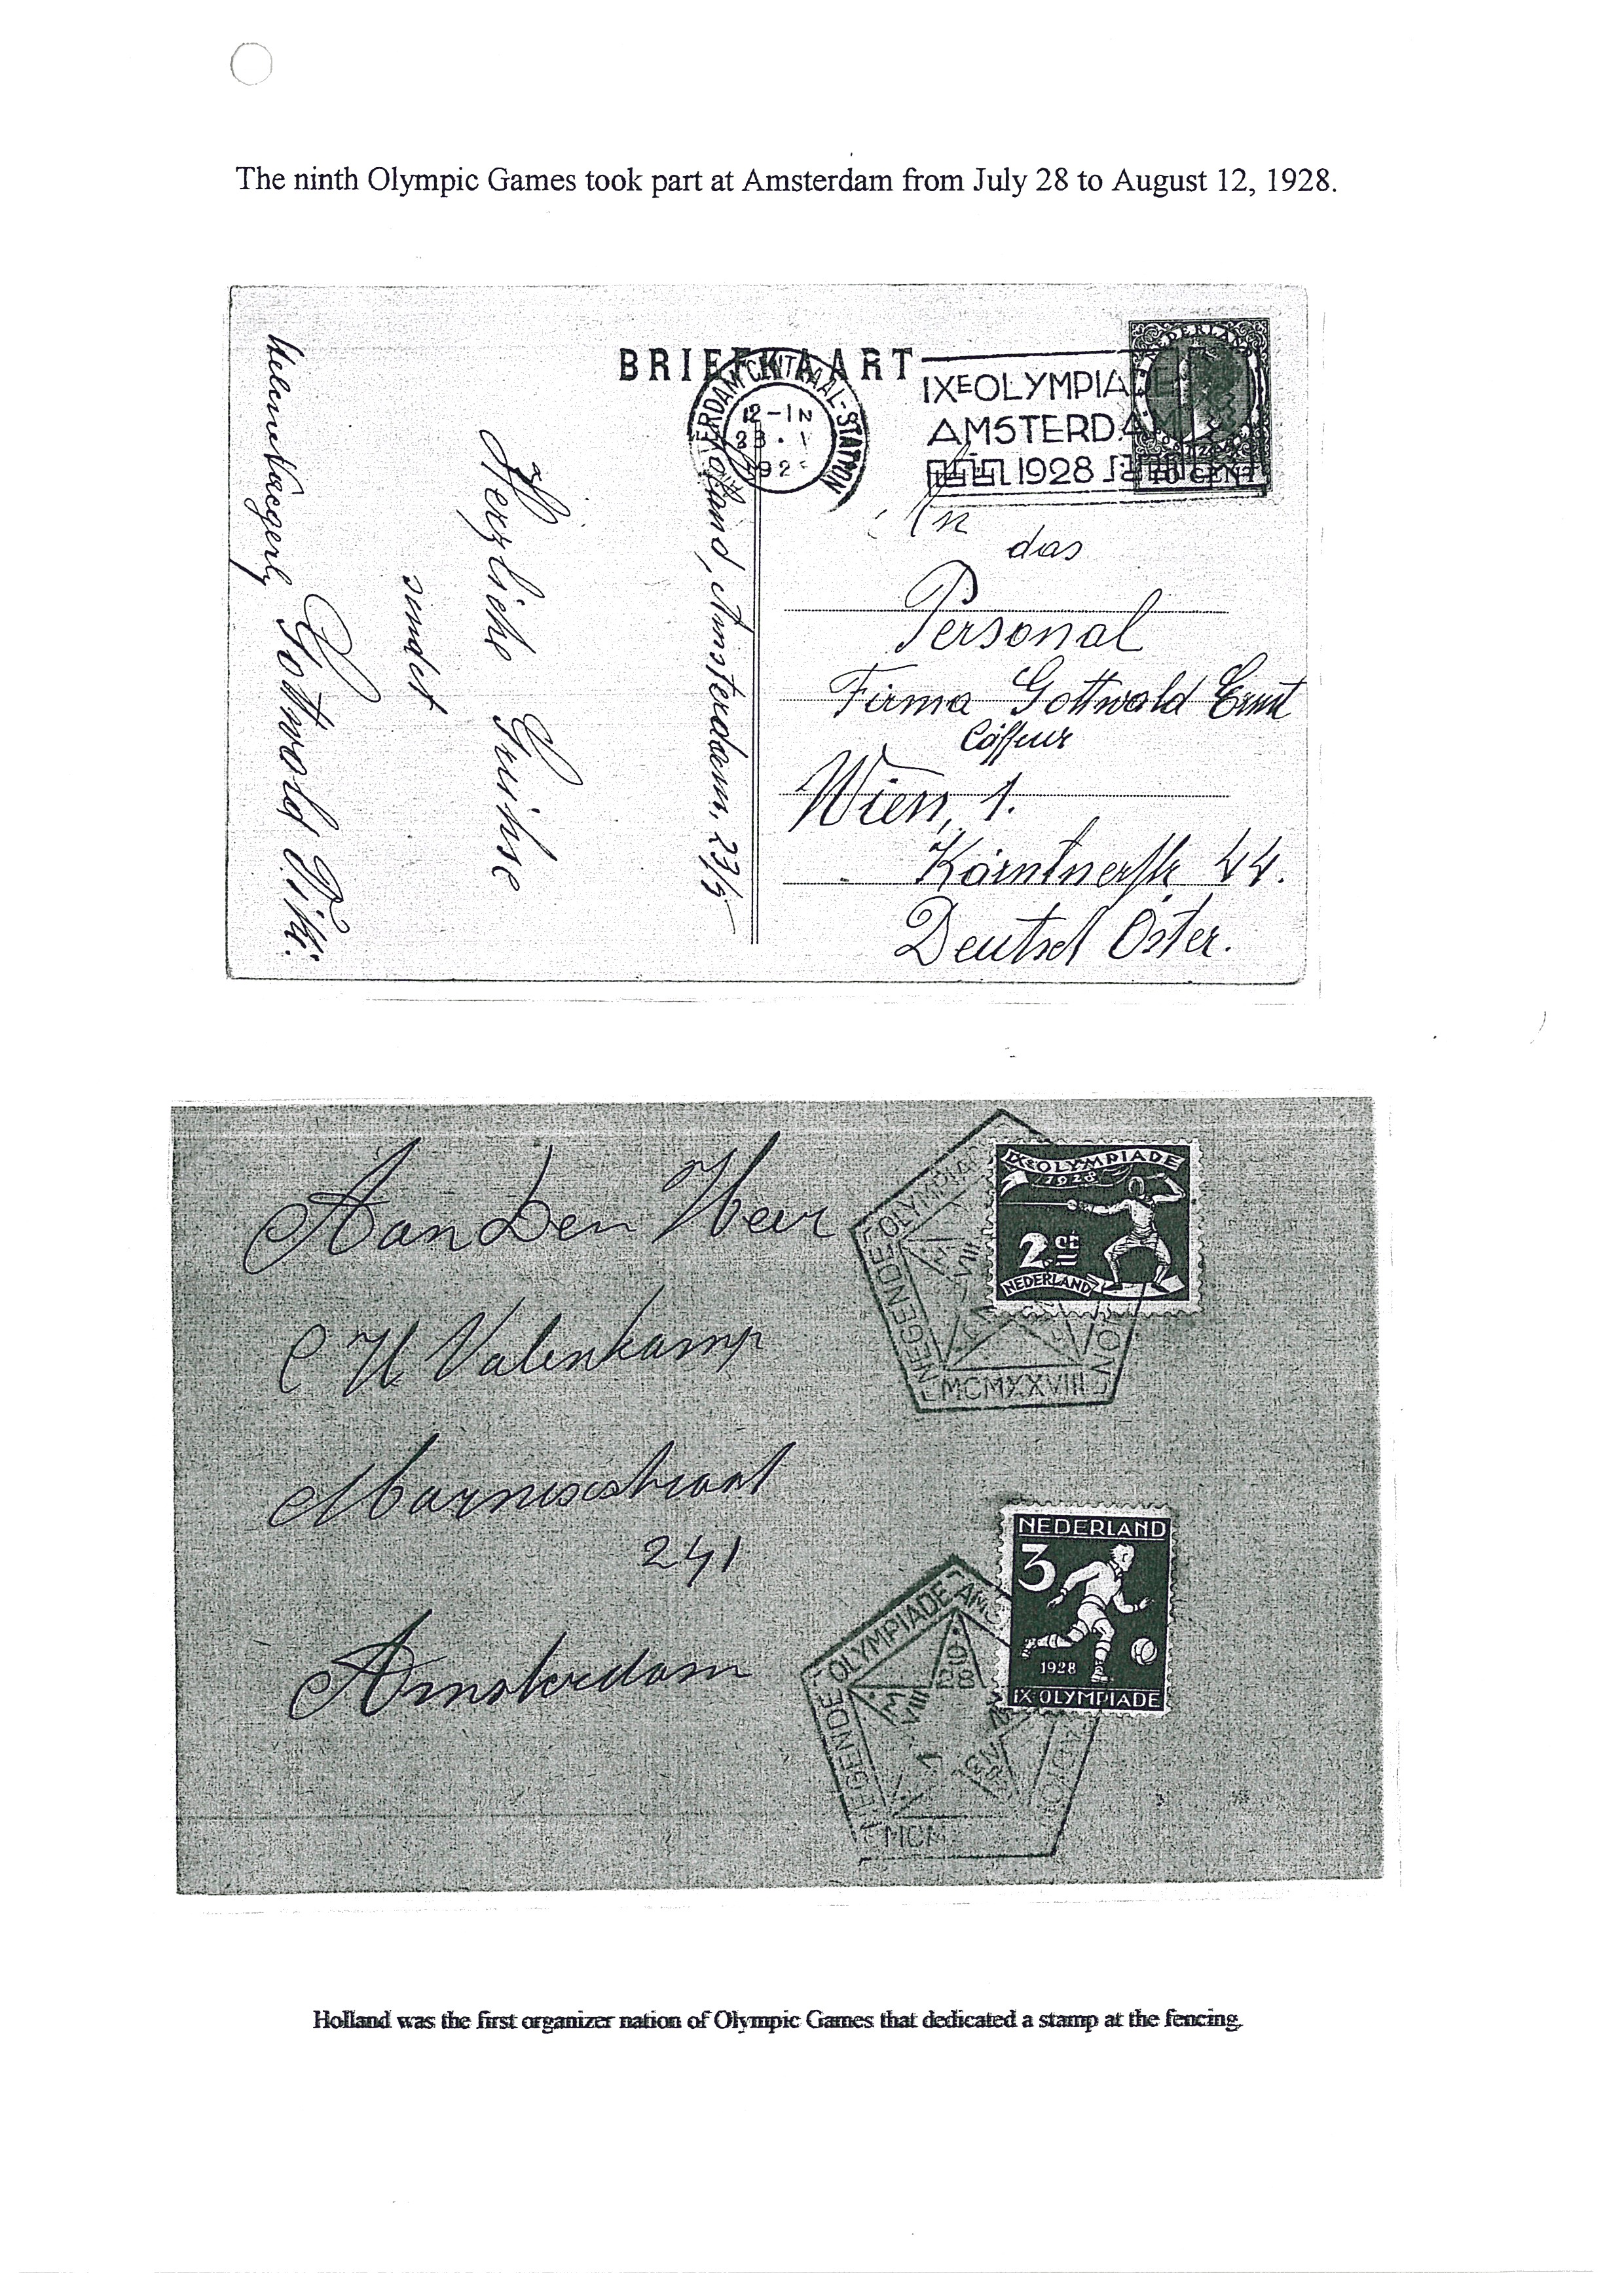 The ninth Olympic Games took part at Amsterdam from July 28 to August 12, 1928.
BRIEFKAART
CENTRAAL-STATION
12-1N
IXE OLYMPIADE
AMSTERDA
1928
10 CENT
An
das
Personal
Firma Gottwald Ernst
Coiffeur
Wien, 1.
Kärntnerstr 44.
Deutsch Öster.
Holland, Amsterdam, 23/5
Herzliche Grühse
sendet
Gottwold
Aan Den Heer
C H Valenkamp
Marnixstraat
241
Amsterdam
IXE OLYMPIADE
1928
2 ct
NEDERLAND
NEGENDE OLYMPIADE
VIII
MCMXXVIII
NEDERLAND
3
1928
IX OLYMPIADE
NEGENDE OLYMPIADE AMS
28
VIII
MCM
Holland was the first organizer nation of Olympic Games that dedicated a stamp at the fencing.